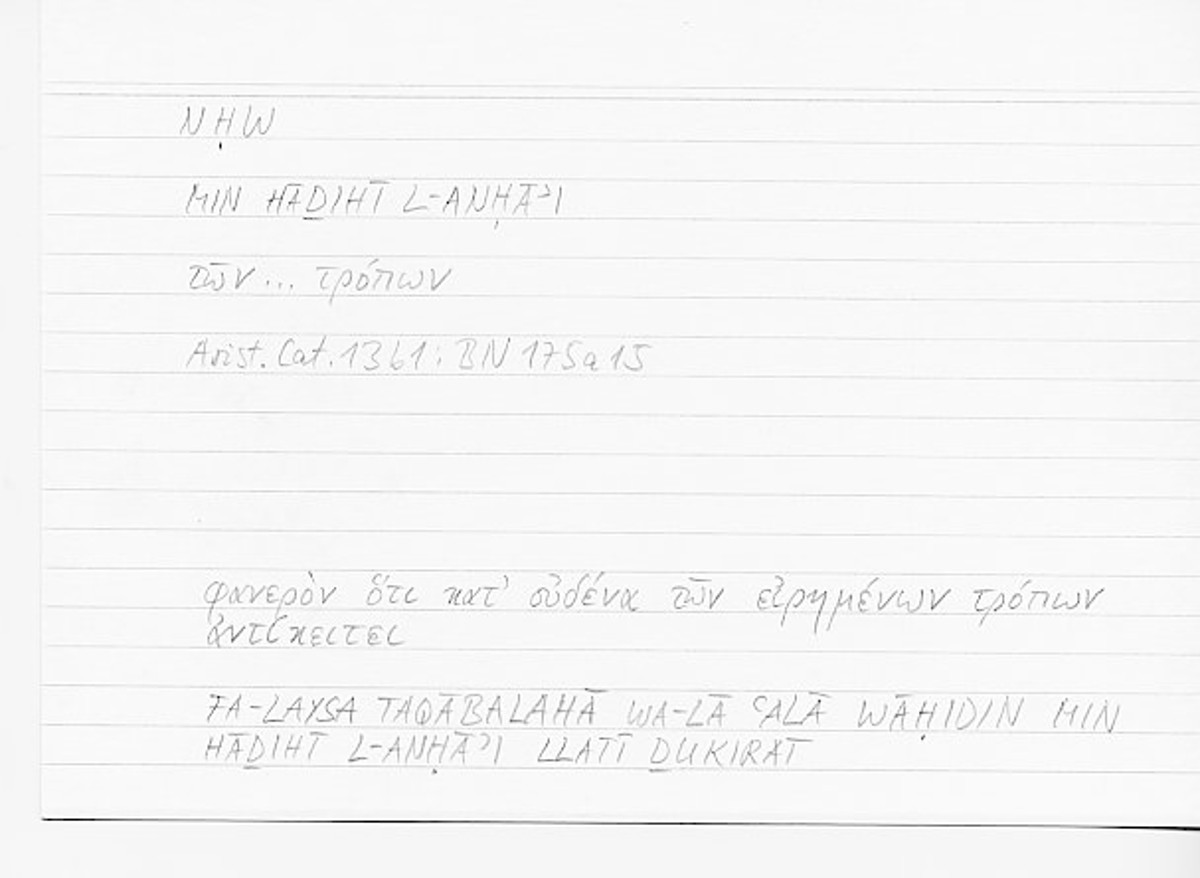 NḤW
MIN HĀḎIHĪ L-ANḤĀʾI
τῶν... τρόπων
Arist. Cat. 13b1; BN 175a15
φανερὸν ὅτι κατ' οὐδένα τῶν εἰρημένων τρόπων
ἀντίκειται
FA-LAYSA TAQĀBALAHĀ WA-LĀ ʿALĀ WĀḤIDIN MIN
HĀḎIHĪ L-ANḤĀʾI LLATĪ ḎUKIRAT